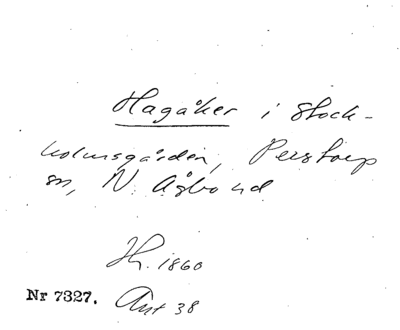 Hagåker i Stock-
holmsgården, Perstorp
sn, N. Åsbo hd
H. 1860
Nr 7327. Ant 38